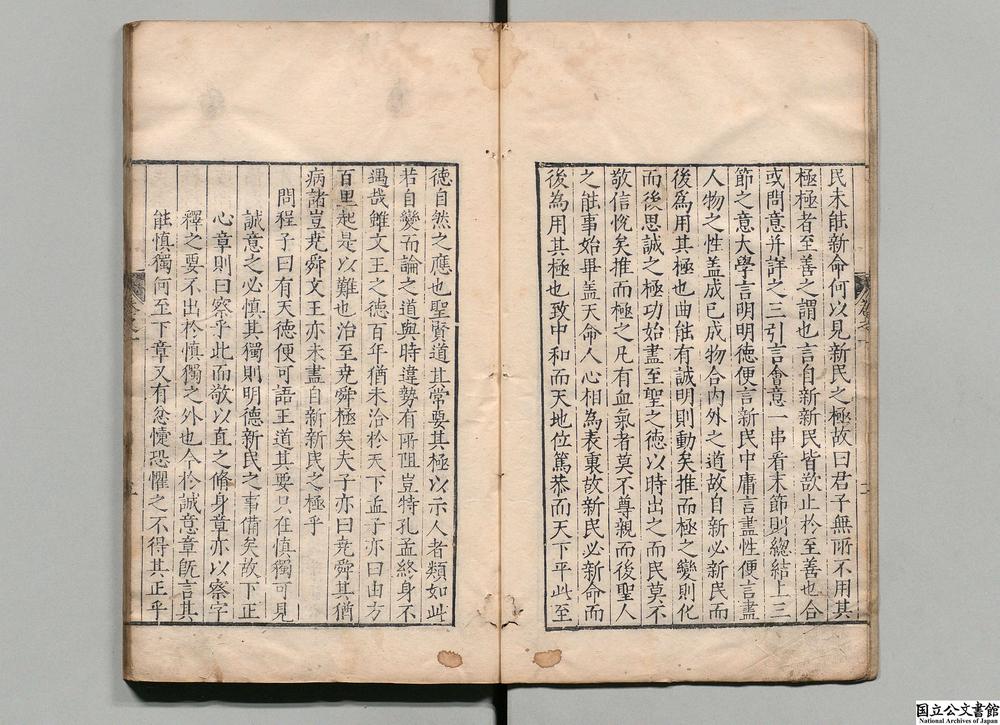 民未能新命何以見新民之極故曰君子無所不用其
極極者至善之謂也言自新新民皆欲止於至善也合
或問意并詳之三引言會意一串看末節則總結上三
節之意大學言明明德便言新民中庸言盡性便言盡
人物之性盖成己成物合內外之道故自新必新民而
後為用其極也曲能有誠明則動矣推而極之變則化
而後思誠之極功始盡至聖之德以時出之而民莫不
敬信悅矣推而極之凡有血氣者莫不尊親而後聖人
之能事始畢盖天命人心相為表裏故新民必新命而
後為用其極也致中和而天地位篤恭而天下平此至
德自然之應也聖賢道其常要其極以示人者類如此
若自變而論之道與時違勢有所阻豈特孔孟終身不
遇哉雖文王之德百年猶未洽於天下孟子亦曰由方
百里起是以難也治至堯舜極矣夫子亦曰堯舜其猶
病諸豈堯舜文王亦未盡自新新民之極乎
問程子曰有天德便可語王道其要只在慎獨可見
誠意之必慎其獨則明德新民之事備矣故下正
心章則曰察乎此而敬以直之脩身章亦以察字
釋之要不出於慎獨之外也今於誠意章旣言其
能慎獨何至下章又有忿懥恐懼之不得其正乎
国立公文書館
National Archives of Japan